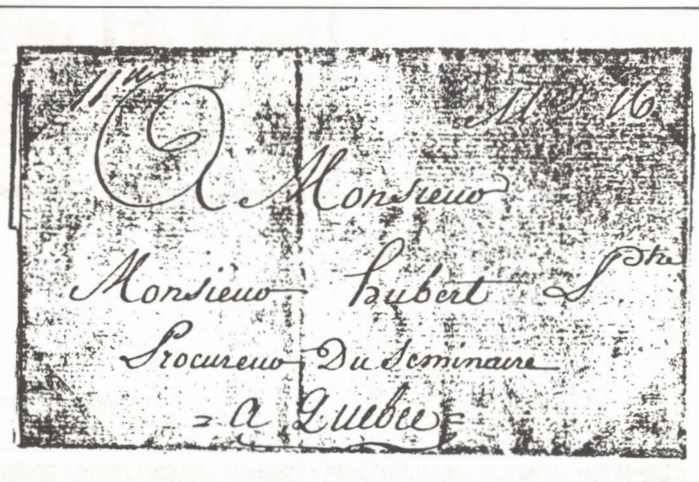 16
A Monsieur
Monsieur hubert Ptre
Procureur Du Seminaire
= a Quebec =